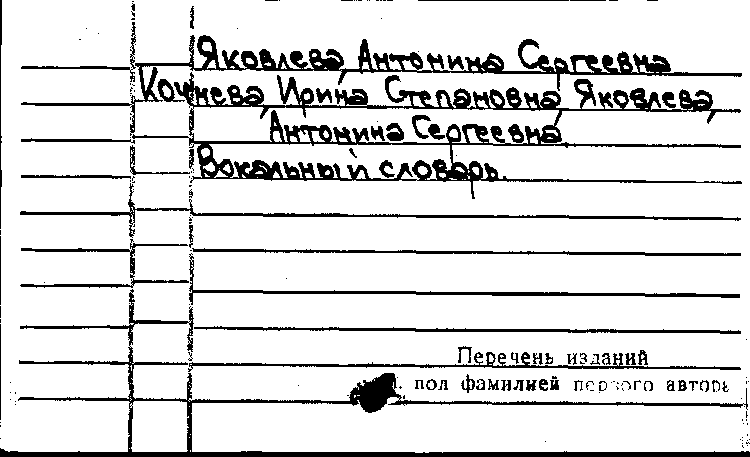 Яковлева, Антонина Сергеевна
Кочнева, Ирина Степановна, Яковлева,
Антонина Сергеевна.
Вокальный словарь.
Перечень изданий
под фамилией первого автора